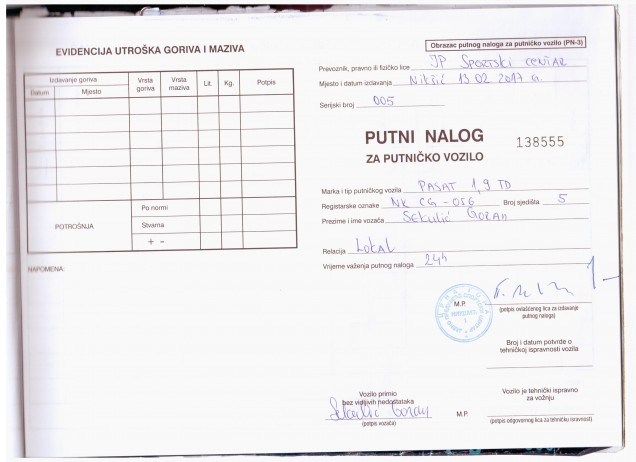 EVIDENCIJA UTROŠKA GORIVA I MAZIVA
Izdavanje goriva
Vrsta goriva
Vrsta maziva
Lit.
Kg.
Potpis
Datum
Mjesto
POTROŠNJA
Po normi
Stvarna
+ -
NAPOMENA:
Obrazac putnog naloga za putničko vozilo (PN-3)
Prevoznik, pravno ili fizičko lice JP SPORTSKI CENTAR
Mjesto i datum izdavanja Nikšić 13 02 2017 g.
Serijski broj 005
PUTNI NALOG
138555
ZA PUTNIČKO VOZILO
Marka i tip putničkog vozila PASAT 1,9 TD
Registarske oznake NK CG-016 Broj sjedišta 5
Prezime i ime vozača SEKULIĆ GORAN
Relacija LOKAL
Vrijeme važenja putnog naloga 24h
M.P.
(potpis ovlašćenog lica za izdavanje
putnog naloga)
Broj i datum potvrde o
tehničkoj ispravnosti vozila
Vozilo primio
bez vidljivih nedostataka
Sekulić Goran
(potpis vozača)
Vozilo je tehnički ispravno
za vožnju
M.P.
(potpis odgovornog lica za tehničku isravnost)